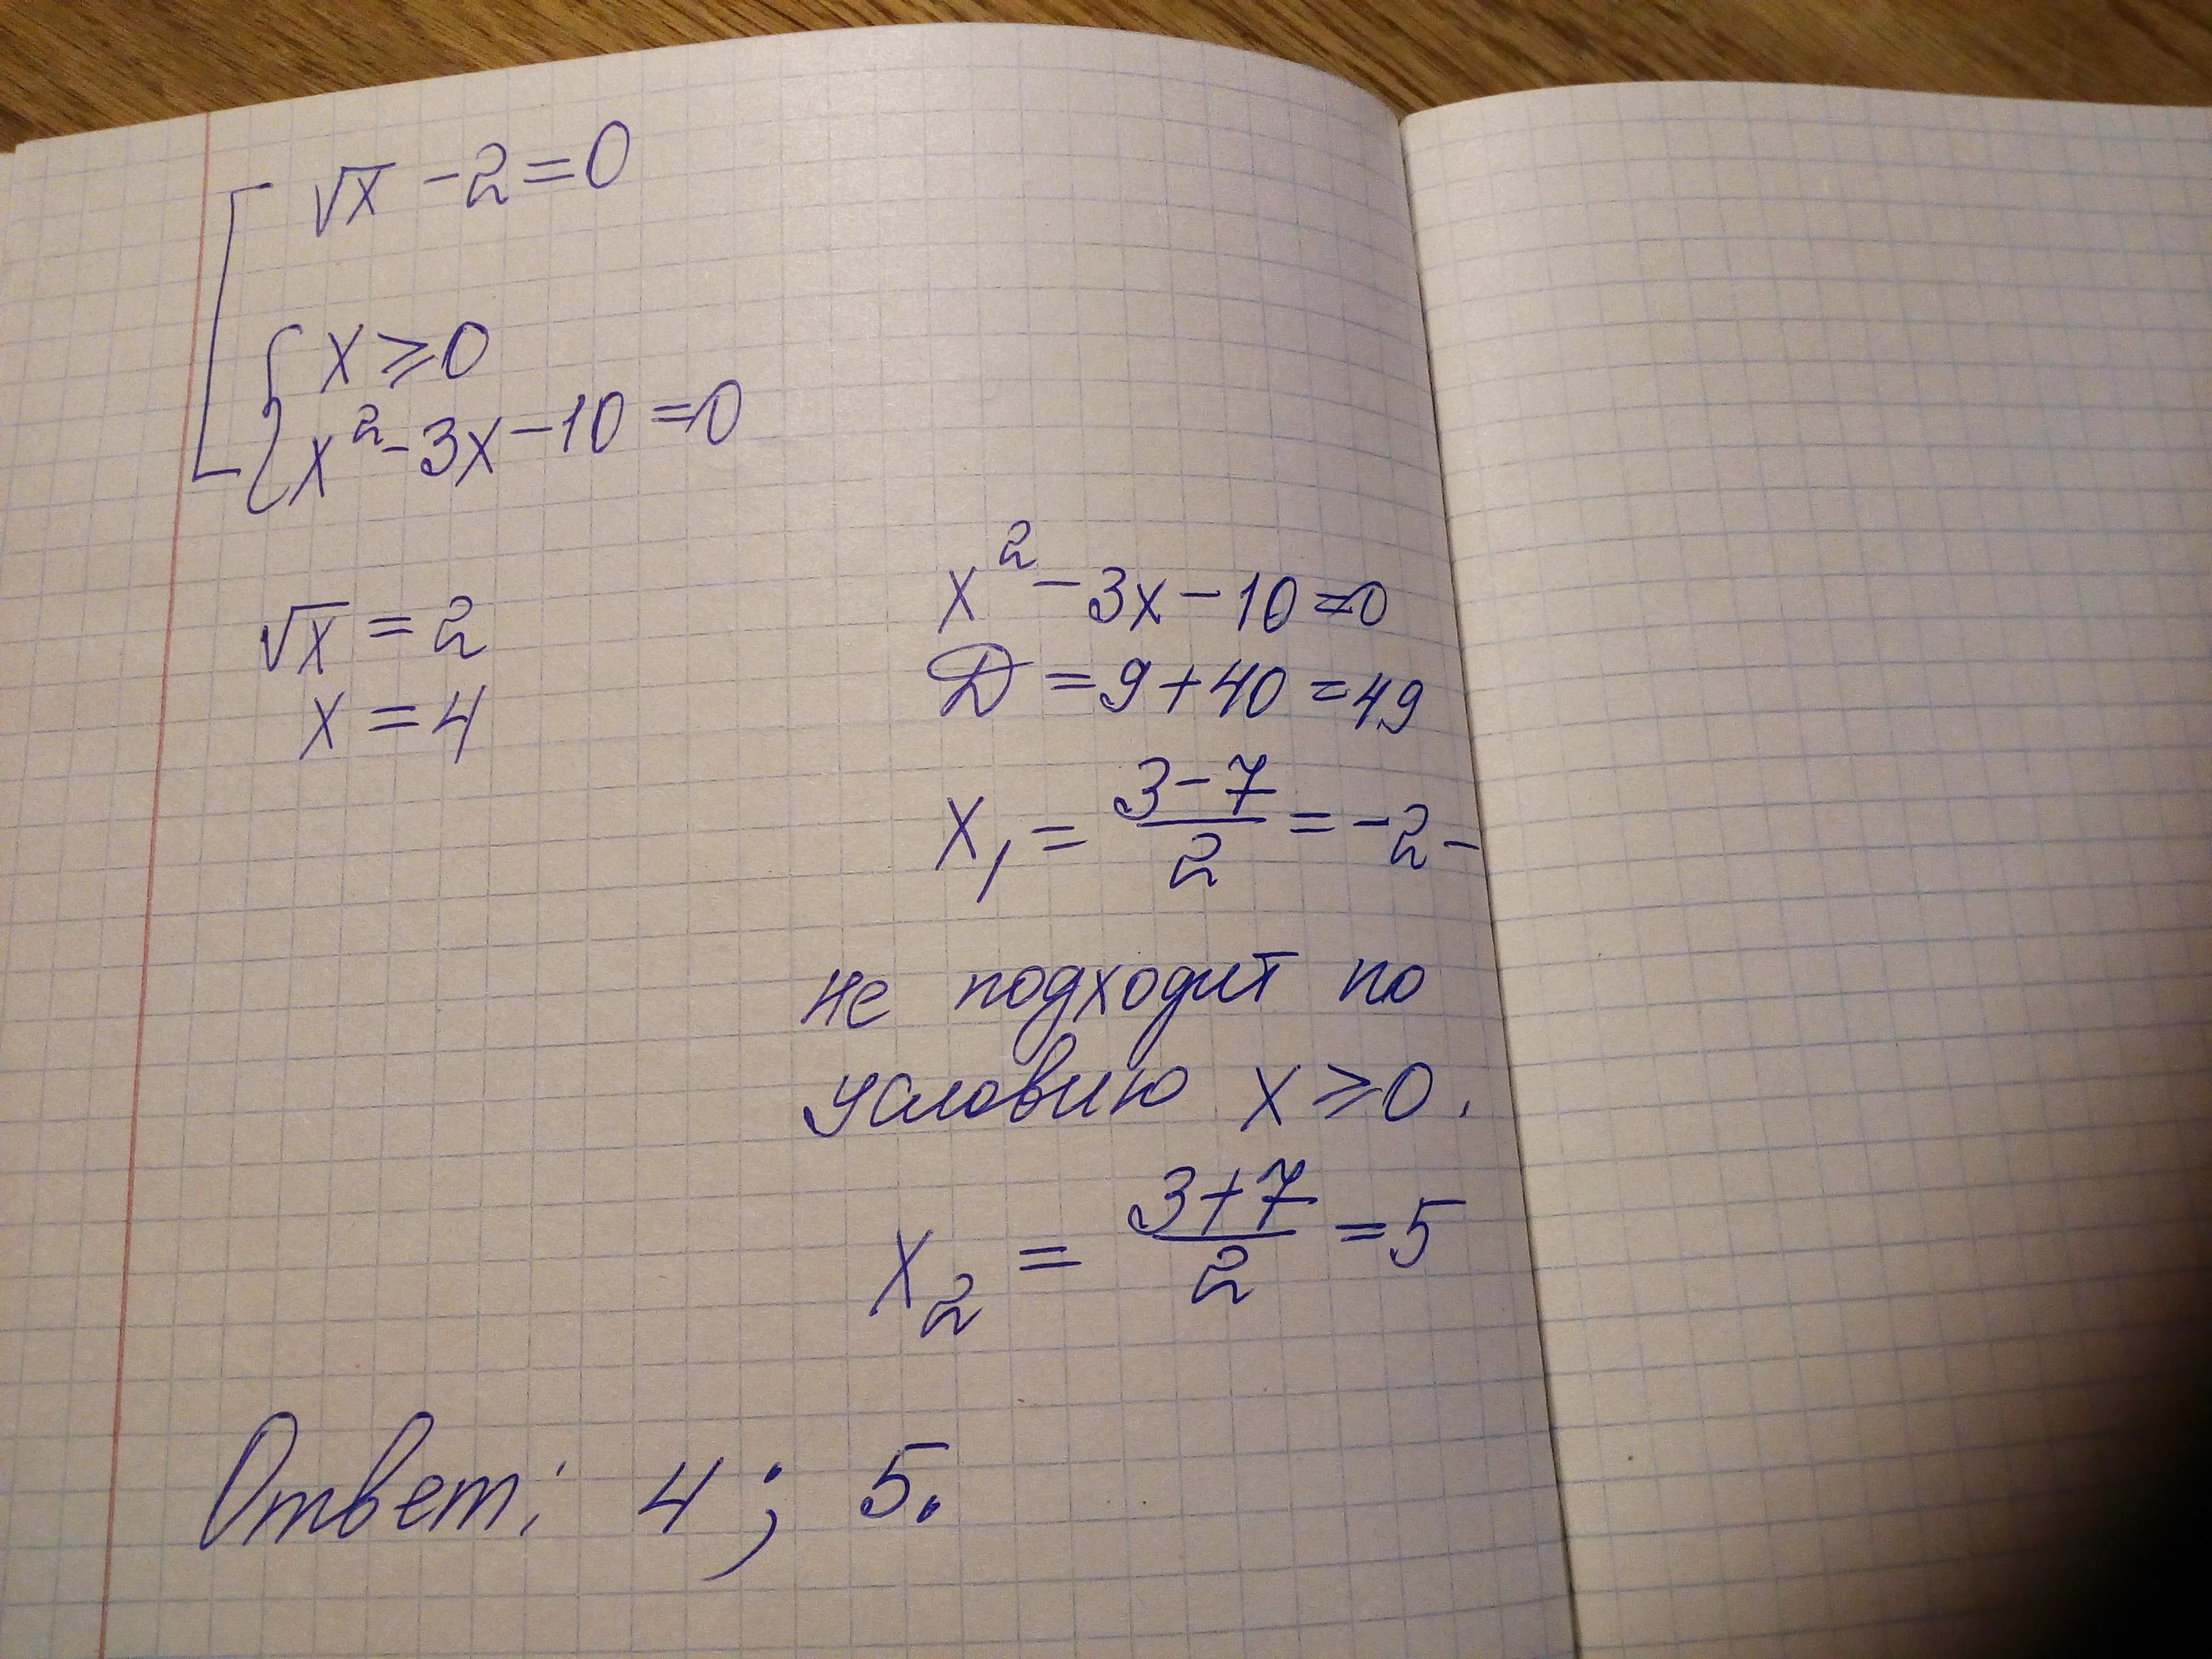 √x - 2 = 0
x ≥ 0
x² - 3x - 10 = 0
√x = 2
x = 4
x² - 3x - 10 = 0
Д = 9 + 40 = 49
x₁ = (3 - 7)/2 = -2 -
не подходит по
условию x ≥ 0.
x₂ = (3 + 7)/2 = 5
Ответ: 4; 5.